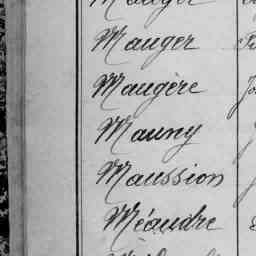 Mauger
Mauger
Maugère
Mauny
Maussion
Méaudre